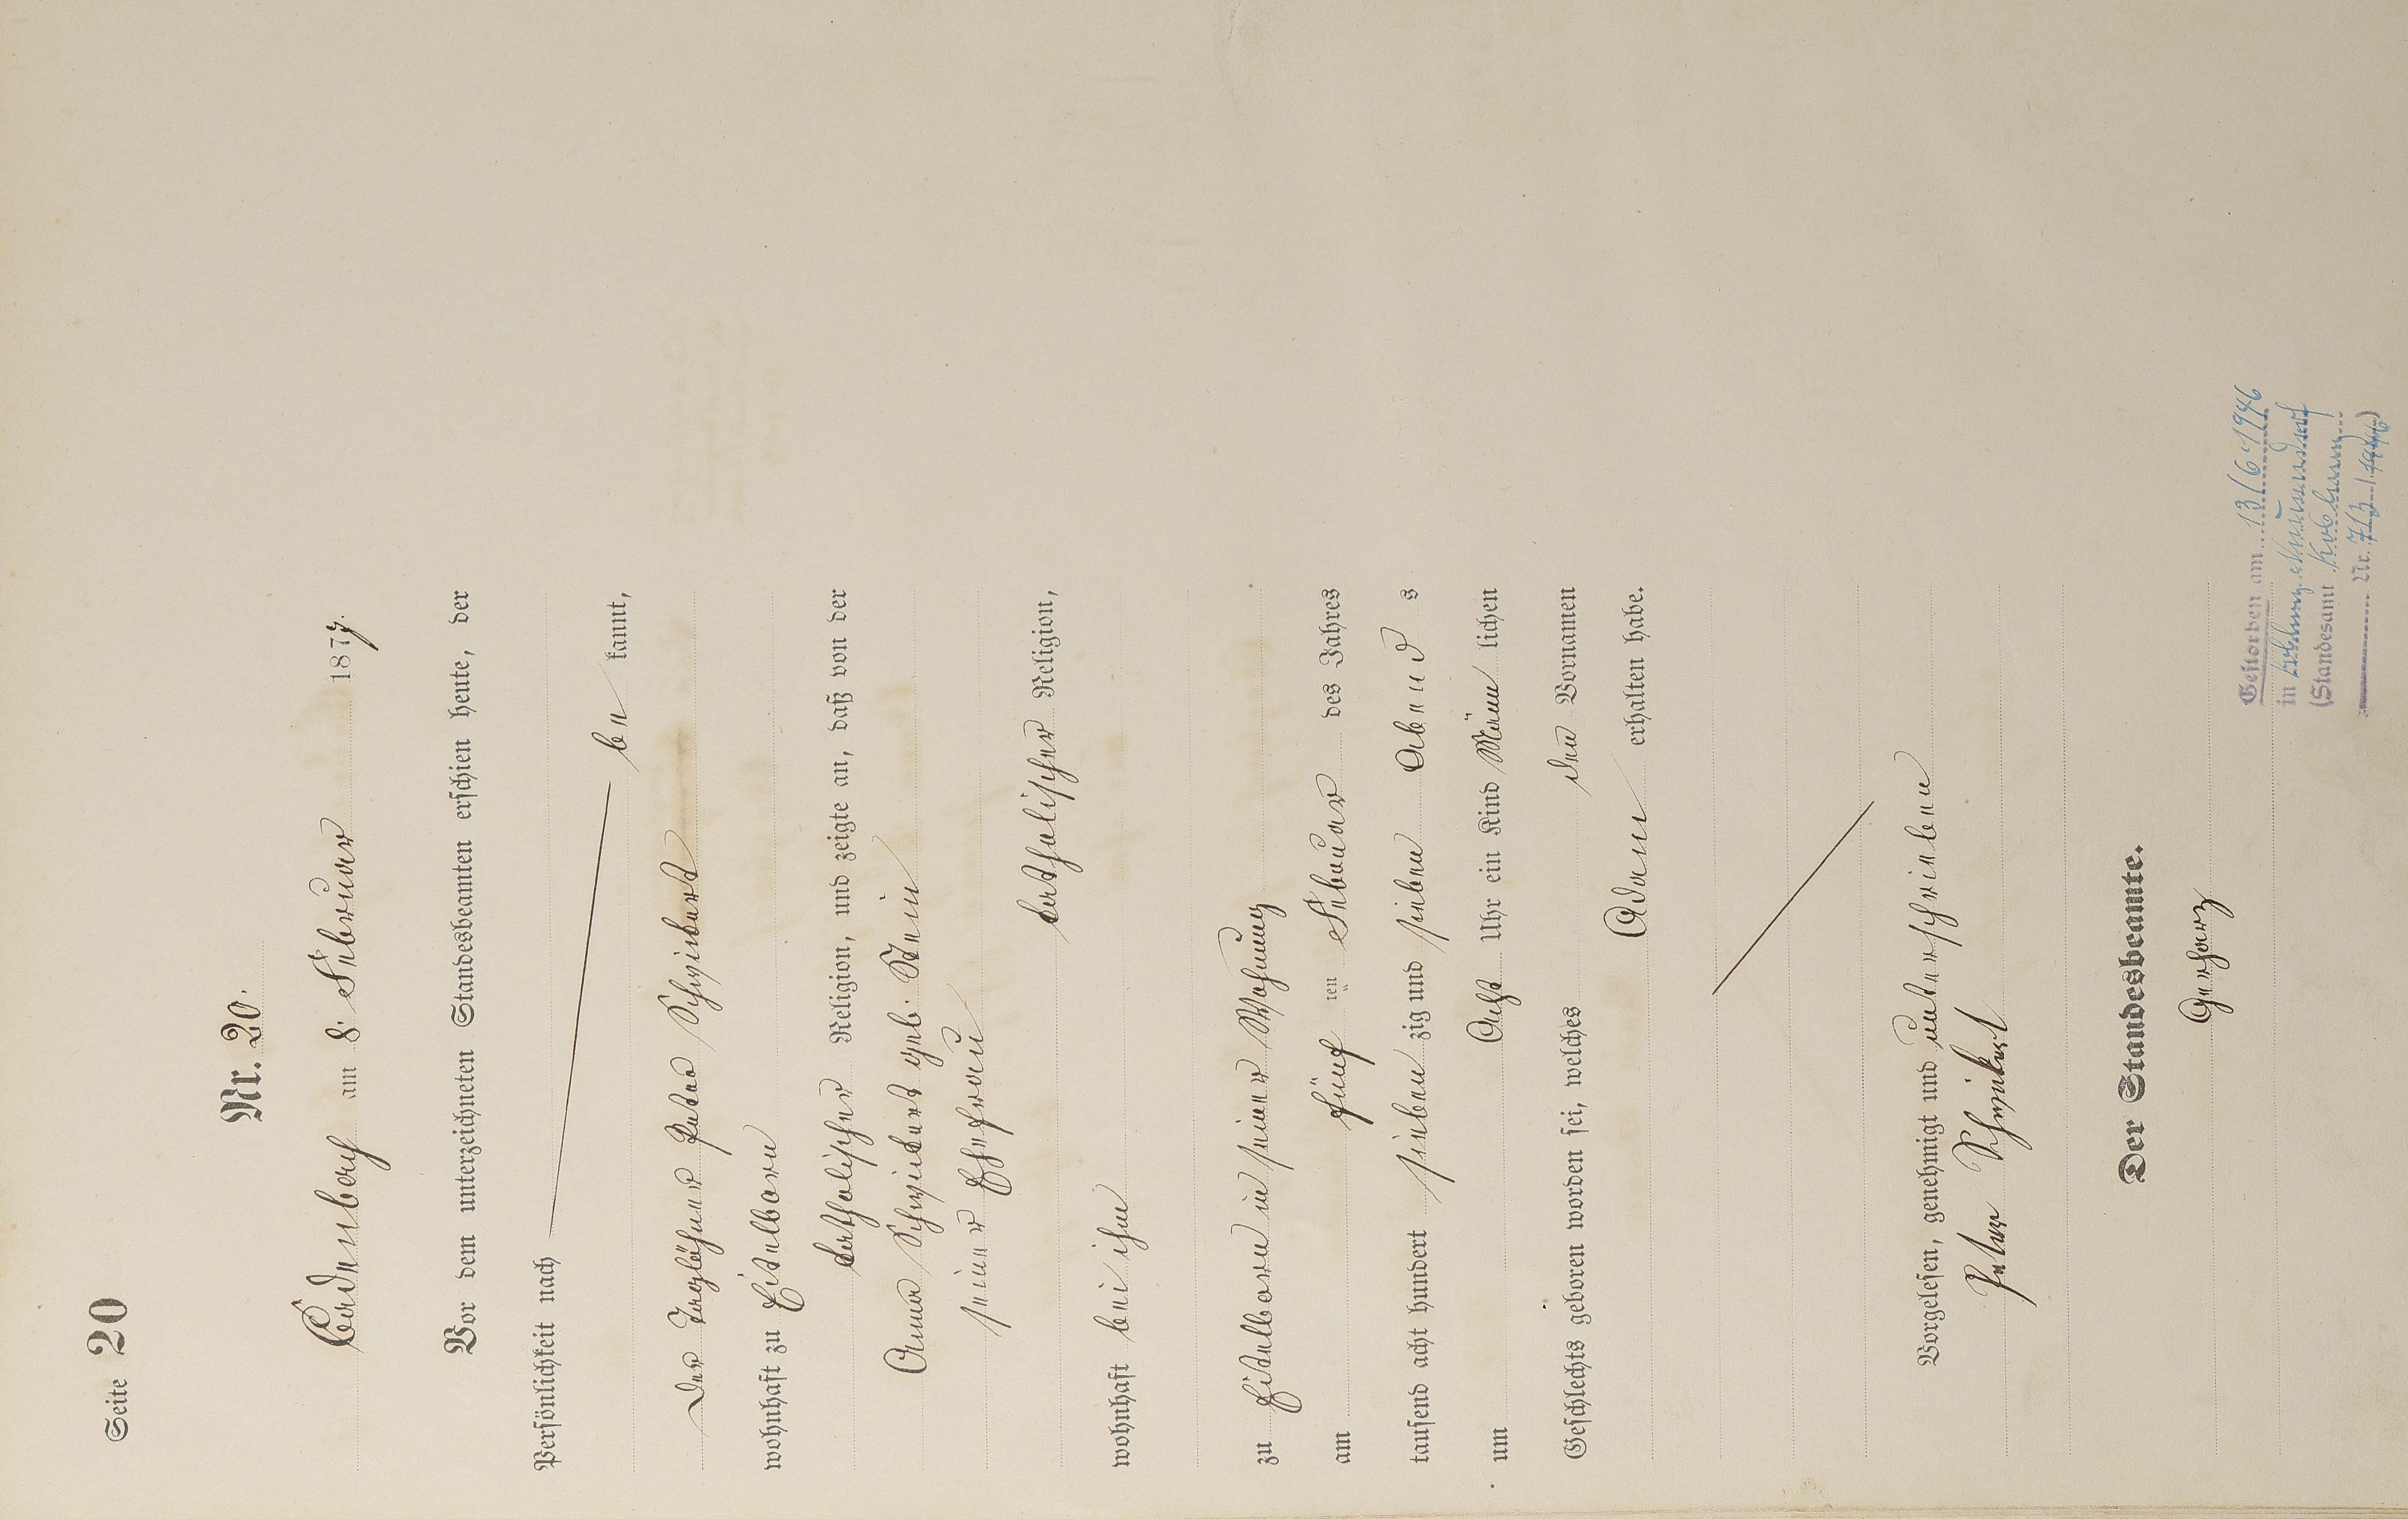 Seite 20
Nr. 20.
Cadenbach am 8. Februar 1877.
Vor dem unterzeichneten Standesbeamten erschien heute, der
Persönlichkeit nach
be kannt,
der Taglöhner Peter Schweikert
wohnhaft zu Eitelborn
katholischer Religion, und zeigte an, daß von der
Anna Schweikert geb. Stein
seiner Ehefrau
katholischer Religion,
wohnhaft bei ihm
zu Eitelborn in seiner Wohnung
am fünf ten Februar des Jahres
tausend acht hundert sieben zig und sieben Abend s
um Acht Uhr ein Kind Männ lichen
Geschlechts geboren worden sei, welches den Vornamen
Adam erhalten habe.
Vorgelesen, genehmigt und unterschrieben
Peter Schweikert
Der Standesbeamte.
Gerharz
Gestorben am 13/6 1946
in
(Standesamt Koblenz
Nr. 713/1946)